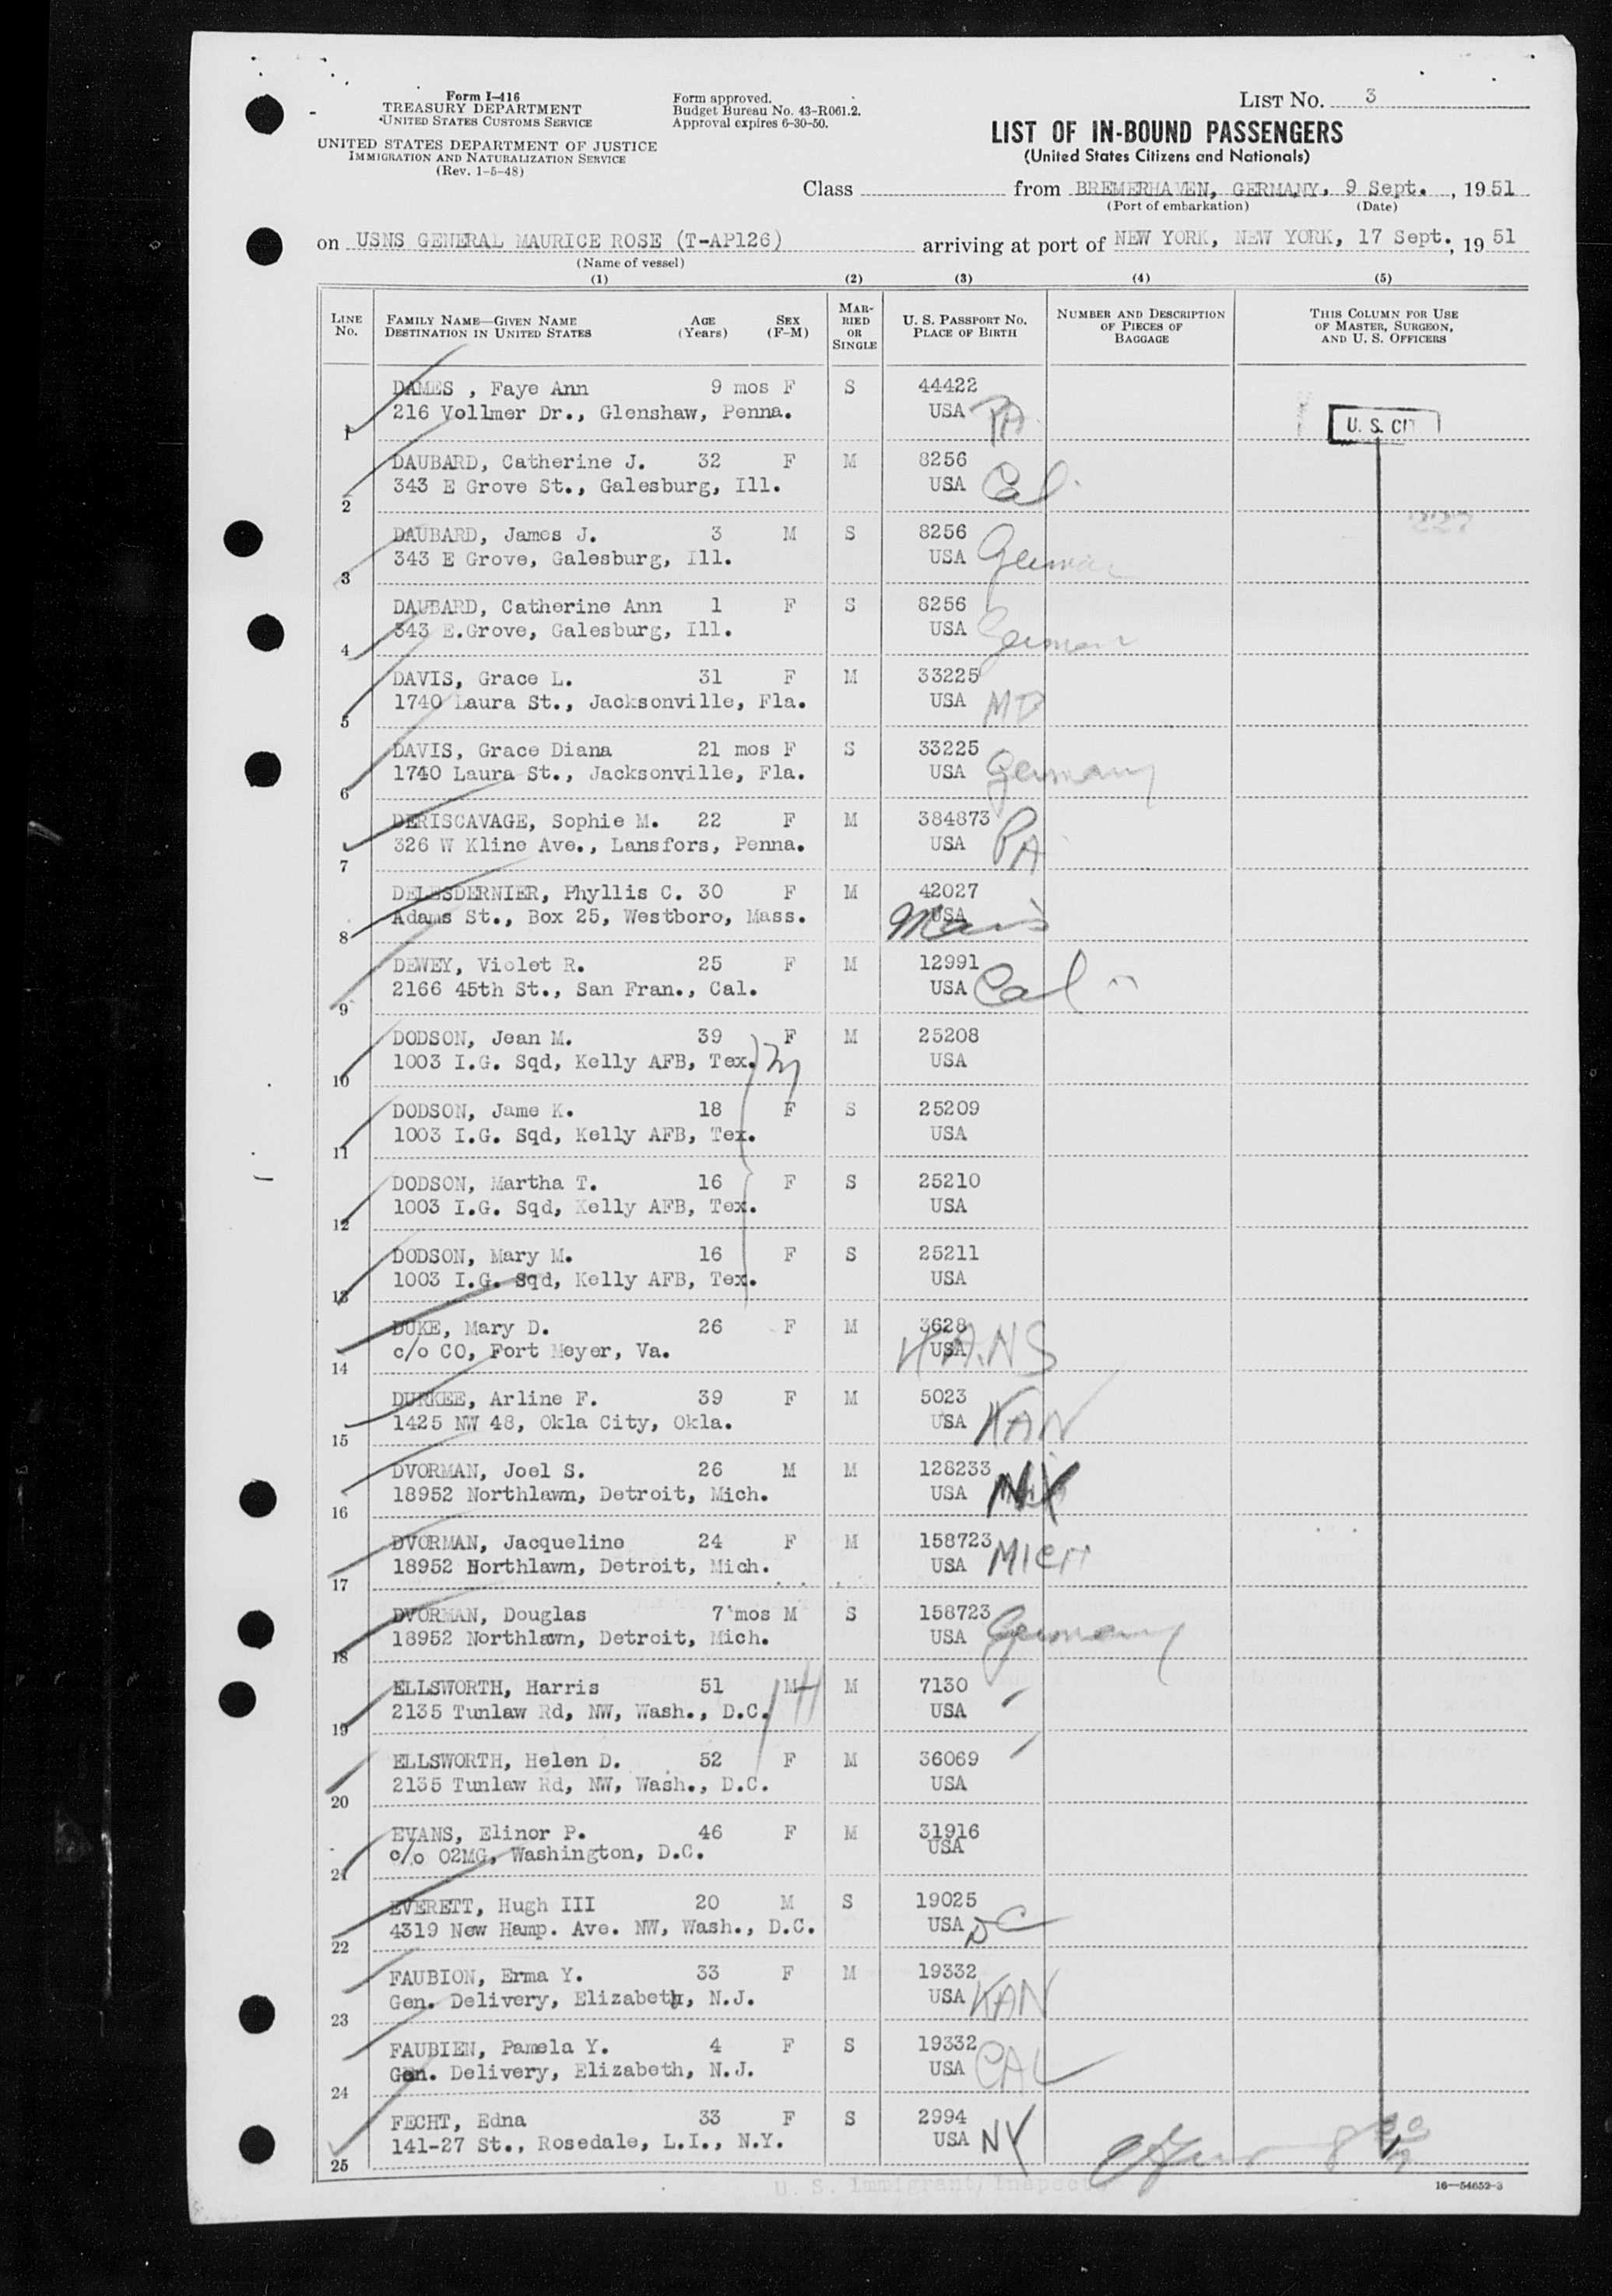 Form I-416
TREASURY DEPARTMENT
UNITED STATES CUSTOMS SERVICE
UNITED STATES DEPARTMENT OF JUSTICE
IMMIGRATION AND NATURALIZATION SERVICE
(Rev. 1-5-48)
Form approved.
Budget Bureau No. 43-R061.2.
Approval expires 6-30-50.
LIST NO. 3
LIST OF IN-BOUND PASSENGERS
(United States Citizens and Nationals)
Class from BREMERHAVEN, GERMANY, 9 Sept., 1951
(Port of embarkation) (Date)
on USNS GENERAL MAURICE ROSE (T-AP126) arriving at port of NEW YORK, NEW YORK, 17 Sept., 1951
(Name of vessel)
(1) (2) (3) (4) (5)
LINE No. FAMILY NAME—GIVEN NAME DESTINATION IN UNITED STATES AGE (Years) SEX (F-M) MARRIED OR SINGLE U. S. PASSPORT NO. PLACE OF BIRTH NUMBER AND DESCRIPTION OF PIECES OF BAGGAGE THIS COLUMN FOR USE OF MASTER, SURGEON, AND U. S. OFFICERS
DAMES , Faye Ann 9 mos F S 44422
1 216 Vollmer Dr., Glenshaw, Penna. USA PA U. S. CIT
DAUBARD, Catherine J. 32 F M 8256
2 343 E Grove St., Galesburg, Ill. USA Cal
DAUBARD, James J. 3 M S 8256
3 343 E Grove, Galesburg, Ill. USA German
DAUBARD, Catherine Ann 1 F S 8256
4 343 E.Grove, Galesburg, Ill. USA German
DAVIS, Grace L. 31 F M 33225
5 1740 Laura St., Jacksonville, Fla. USA MD
DAVIS, Grace Diana 21 mos F S 33225
6 1740 Laura St., Jacksonville, Fla. USA Germany
DERISCAVAGE, Sophie M. 22 F M 384873
7 326 W Kline Ave., Lansfors, Penna. USA PA
DELESDERNIER, Phyllis C. 30 F M 42027
8 Adams St., Box 25, Westboro, Mass. USA Mass
DEWEY, Violet R. 25 F M 12991
9 2166 45th St., San Fran., Cal. USA Cal
DODSON, Jean M. 39 F M 25208
10 1003 I.G. Sqd, Kelly AFB, Tex. USA
DODSON, Jame K. 18 F S 25209
11 1003 I.G. Sqd, Kelly AFB, Tex. USA
DODSON, Martha T. 16 F S 25210
12 1003 I.G. Sqd, Kelly AFB, Tex. USA
DODSON, Mary M. 16 F S 25211
13 1003 I.G. Sqd, Kelly AFB, Tex. USA
DUKE, Mary D. 26 F M 3628
14 c/o CO, Fort Meyer, Va. USA KANS
DURKEE, Arline F. 39 F M 5023
15 1425 NW 48, Okla City, Okla. USA KAN
DVORMAN, Joel S. 26 M M 128233
16 18952 Northlawn, Detroit, Mich. USA
DVORMAN, Jacqueline 24 F M 158723
17 18952 Northlawn, Detroit, Mich. USA MICH
DVORMAN, Douglas 7 mos M S 158723
18 18952 Northlawn, Detroit, Mich. USA Germany
ELLSWORTH, Harris 51 M M 7130
19 2135 Tunlaw Rd, NW, Wash., D.C. USA
ELLSWORTH, Helen D. 52 F M 36069
20 2135 Tunlaw Rd, NW, Wash., D.C. USA
EVANS, Elinor P. 46 F M 31916
21 c/o O2MG, Washington, D.C. USA
EVERETT, Hugh III 20 M S 19025
22 4319 New Hamp. Ave. NW, Wash., D.C. USA DC
FAUBION, Erma Y. 33 F M 19332
23 Gen. Delivery, Elizabeth, N.J. USA KAN
FAUBIEN, Pamela Y. 4 F S 19332
24 Gen. Delivery, Elizabeth, N.J. USA CAL
FECHT, Edna 33 F S 2994
25 141-27 St., Rosedale, L.I., N.Y. USA NY
U. S. Immigrant Inspector
16—54652-3